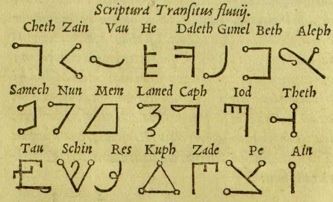 Scriptura Transitus fluuij.
Cheth Zain Vau He Daleth Gimel Beth Aleph
Samech Nun Mem Lamed Caph Iod Theth
Tau Schin Res Kuph Zade Pe Ain